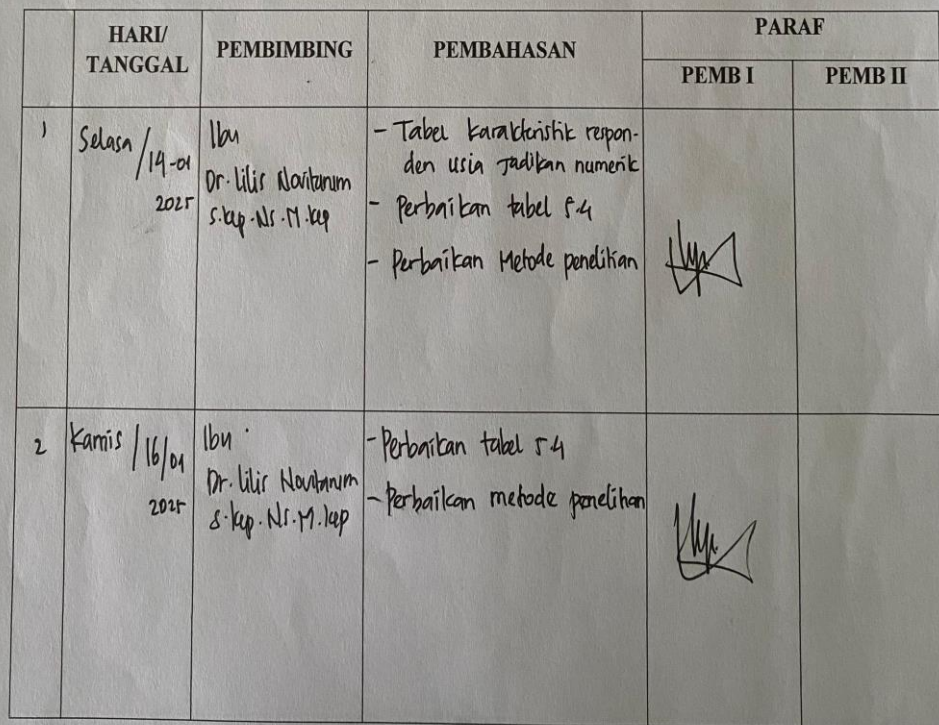 HARI/
TANGGAL
PEMBIMBING
PEMBAHASAN
PARAF
PEMB I
PEMB II
1
Selasa / 14-01
2025
Ibu
Dr. Lilis Novitarum
S.kep.Ns.M.kep
- Tabel karakteristik respon-
den usia Jadikan numerik
- Perbaikan tabel 5.4
- Perbaikan Metode penelitian
2
Kamis / 16/01
2025
Ibu
Dr. Lilis Novitarum
S.kep.Ns.M.kep
- Perbaikan tabel 5.4
- Perbaikan metode penelitian